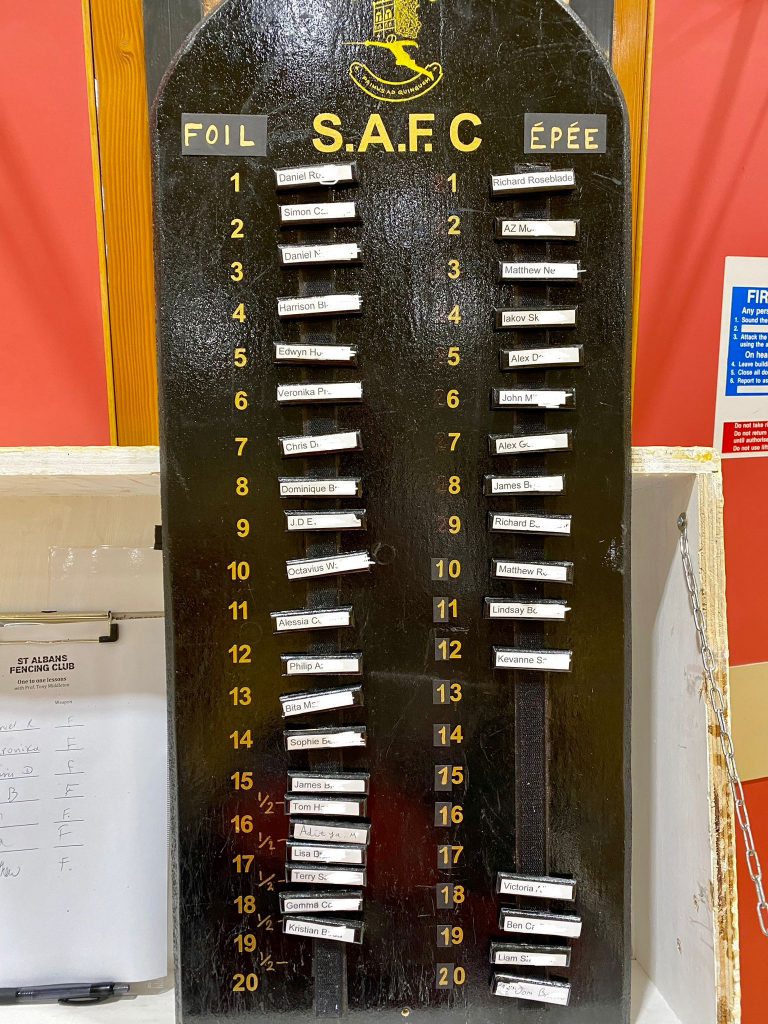 PRIMUS AD QUINQUE
S.A.F.C
FOIL
1 Daniel
2 Simon
3 Daniel N
4 Harrison
5 Edwyn
6 Veronika
7 Chris
8 Dominique
9 J.D
10 Octavius
11 Alessia
12 Philip
13 Bita
14 Sophie
15 James
1/2 Tom
16 Aditya. M
1/2 Lisa
17 Terry
1/2
18 Gemma
1/2 Kristian
19
1/2
20
ÉPÉE
1 Richard Roseblade
2 AZ
3 Matthew Ne
4 Iakov Sk
5 Alex
6 John
7 Alex
8 James
9 Richard
10 Matthew
11 Lindsay
12 Kevanne
13
14
15
16
17
18 Victoria
19 Ben
Liam
20
ST ALBANS
FENCING CLUB
One to one lessons
with Prof. Tony Middleton
Weapon
F.
F
F
F
F.
F
F.
FIR
Any pers
1. Sound the
2.
3. Attack the
using the a
On hea
4. Leave build
5. Close all do
6. Report to as
Do not take ri
Do not return
until authoris
Do not use lift